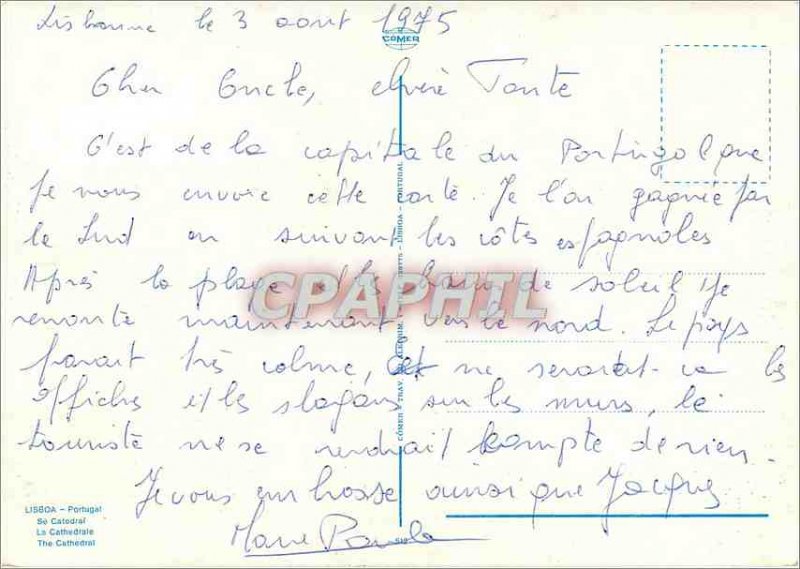 Lisbonne le 3 aout 1975
COMER
Cher Oncle, chère Tante
C'est de la capitale du Portugal que
je vous envoie cette carte. Je l'ai gagnée par
le Sud en suivant les côtes espagnoles
Après la plage et les bains de soleil je
remonte maintenant vers le nord. Le pays
parait très calme, et ne serait-ce les
affiches et les slogans sur les murs, le
touriste ne se rendrait compte de rien.
Je vous embrasse ainsi que Jacques
Marie Paule
CPAPHIL
LISBOA - Portugal
Sé Catedral
La Cathedrale
The Cathedral
COMER - TRAV. LISBOA - PORTUGAL